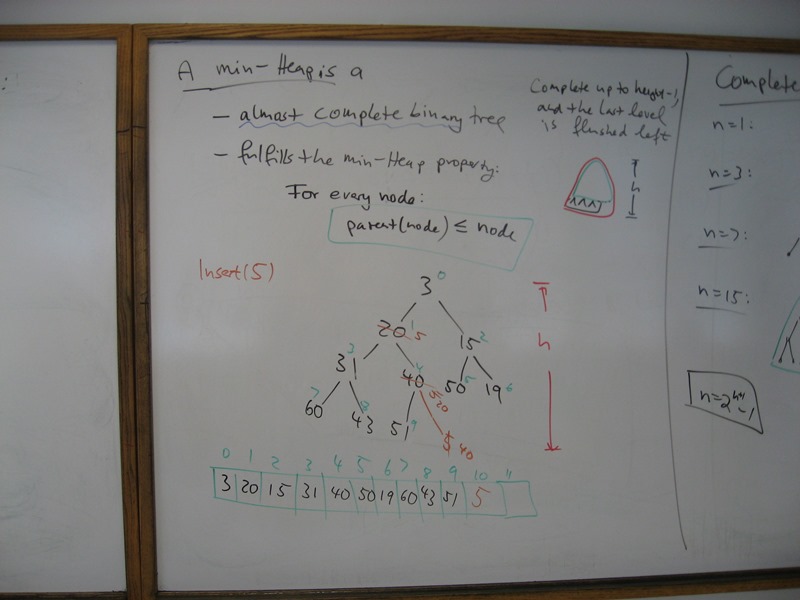 A min-Heap is a
- almost complete binary tree
- fulfills the min-Heap property:
For every node:
parent(node) ≤ node
Complete up to height-1,
and the last level
is flushed left
h
Insert(5)
3 0
20 1 5
15 2
31 3
40 4 5 20
50 5
19 6
60 7
43 8
51 9
5 40
h
0 1 2 3 4 5 6 7 8 9 10 11
3 20 15 31 40 50 19 60 43 51 5
Complete
n=1:
n=3:
n=7:
n=15:
n=2^h+1 -1